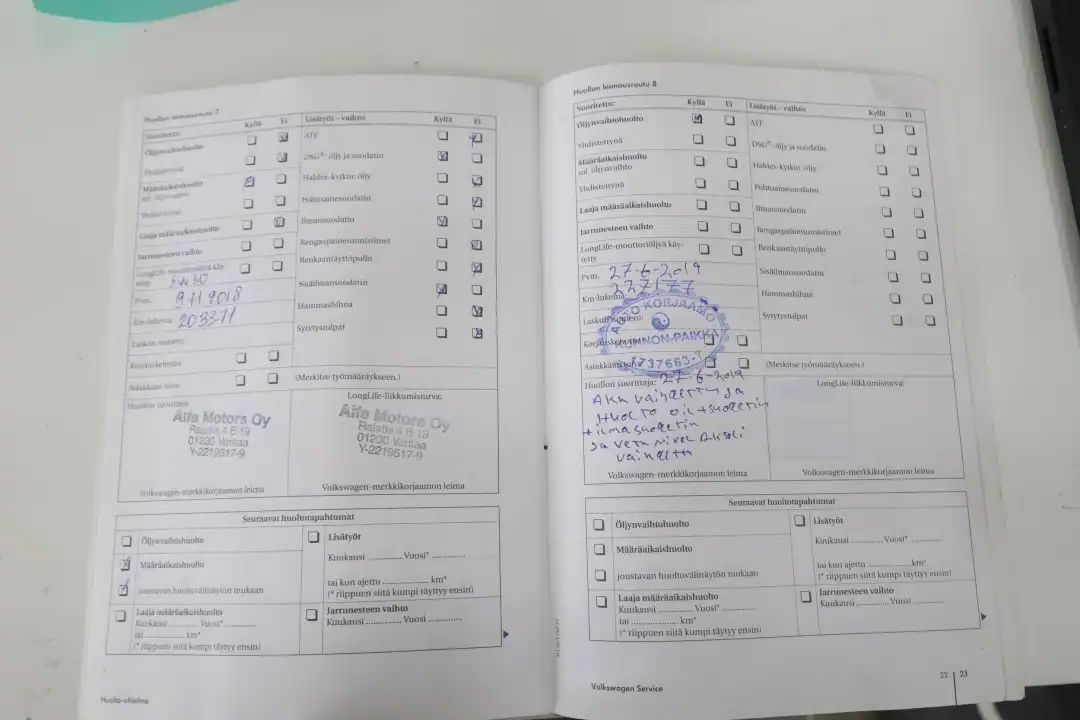 Huollon leimausruutu 7
Suoritettu: Kyllä Ei Lisätyöt – vaihto: Kyllä Ei
Öljynvaihtohuolto
Yhdistettynä
Määräaikaishuolto
ml. öljynvaihto
Yhdistettynä
Laaja määräaikaishuolto
Jarrunesteen vaihto
LongLife-moottoriöljyä käy-
tetty 5W30
Pvm. 9 11 2018
Km-lukema: 203371
Laskun numero:
Korjauskehotus
Asiakkaan toive
ATF
DSG®: öljy ja suodatin
Haldex-kytkin: öljy
Polttoainesuodatin
Ilmansuodatin
Rengaspainetunnistimet
Renkaantäyttöpullo
Sisäilmansuodatin
Hammashihna
Sytytystulpat
(Merkitse työmääräykseen.)
Huollon suorittaja:
Alfa Motors Oy
Ralatie 4 B 19
01230 Vantaa
Y-2219517-9
Volkswagen-merkkikorjaamon leima
LongLife-liikkumisturva:
Alfa Motors Oy
Ralatie 4 B 19
01230 Vantaa
Y-2219517-9
Volkswagen-merkkikorjaamon leima
Seuraavat huoltotapahtumat
Öljynvaihtohuolto
Määräaikaishuolto
joustavan huoltovälinäytön mukaan
Laaja määräaikaishuolto
Kuukausi .............. Vuosi* ..............
tai .............. km*
(* riippuen siitä kumpi täytyy ensin)
Lisätyöt
Kuukausi .............. Vuosi* ..............
tai kun ajettu .................. km*
(* riippuen siitä kumpi täyttyy ensin)
Jarrunesteen vaihto
Kuukausi .............. Vuosi ..............
Huolto-ohjelma
Huollon leimausruutu 8
Suoritettu: Kyllä Ei Lisätyöt – vaihto: Kyllä Ei
Öljynvaihtohuolto
Yhdistettynä
Määräaikaishuolto
ml. öljynvaihto
Yhdistettynä
Laaja määräaikaishuolto
Jarrunesteen vaihto
LongLife-moottoriöljyä käy-
tetty
Pvm. 27-6-2019
Km-lukema: 227177
Laskun numero:
Korjauskehotus
Asiakkaan toive
AUTO KORJAAMO
KUNNON-PAIKKA
ATF
DSG®: öljy ja suodatin
Haldex-kytkin: öljy
Polttoainesuodatin
Ilmansuodatin
Rengaspainetunnistimet
Renkaantäyttöpullo
Sisäilmansuodatin
Hammashihna
Sytytystulpat
(Merkitse työmääräykseen.)
Huollon suorittaja: 27-6-2019
Akku vaihdettu ja
Huolto
Volkswagen-merkkikorjaamon leima
LongLife-liikkumisturva:
Volkswagen-merkkikorjaamon leima
Seuraavat huoltotapahtumat
Öljynvaihtohuolto
Määräaikaishuolto
joustavan huoltovälinäytön mukaan
Laaja määräaikaishuolto
Kuukausi .............. Vuosi* ..............
tai .................. km*
(* riippuen siitä kumpi täytyy ensin)
Lisätyöt
Kuukausi .............. Vuosi* ..............
tai kun ajettu .................. km*
(* riippuen siitä kumpi täyttyy ensin)
Jarrunesteen vaihto
Kuukausi .............. Vuosi ..............
Volkswagen Service
22 | 23